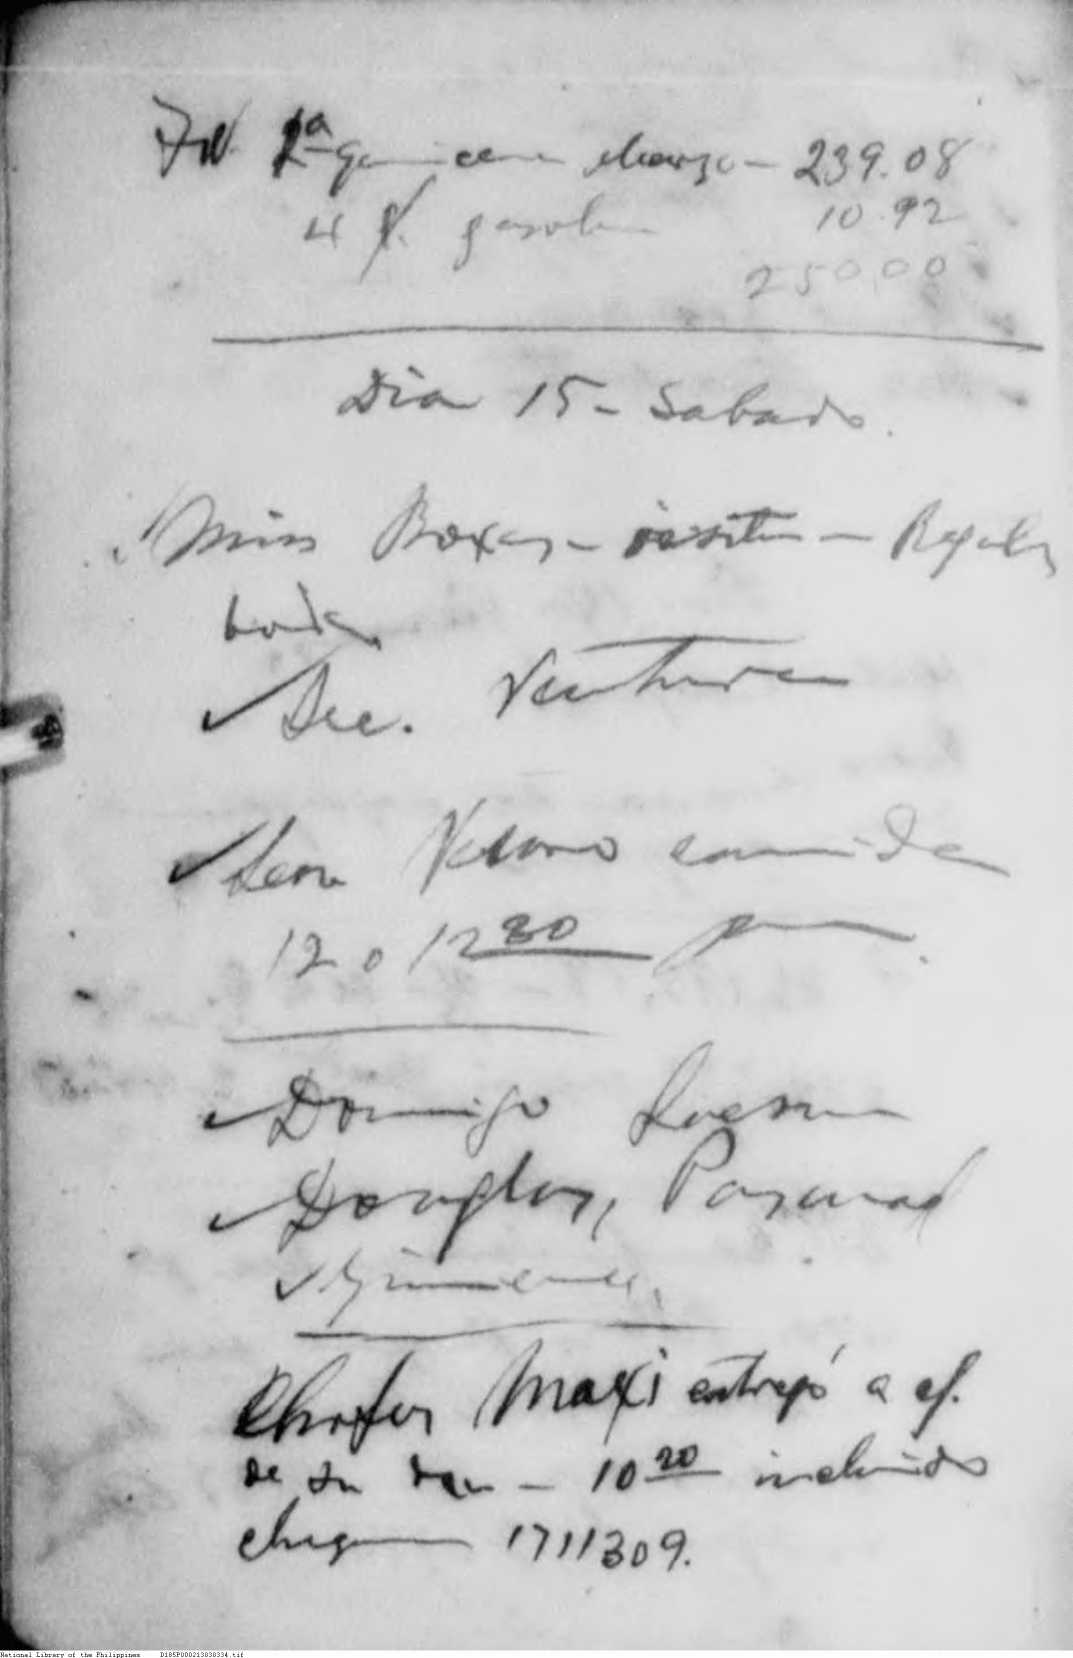 1ª quincena Marzo - 239.08
4 gasolina 10.92
250.00
Dia 15 - Sabado.
Miss Boxes - visita - Regalo
boda
Sec. Ventura
Leon comida
12 o 12 30 pm.
Domingo
Douglas,
Gimenez,
Chofer Maxi entregó a cf.
de su - 10 20 incluido
cheque 1711309.
National Library of the Philippines D185P000213838334.tif